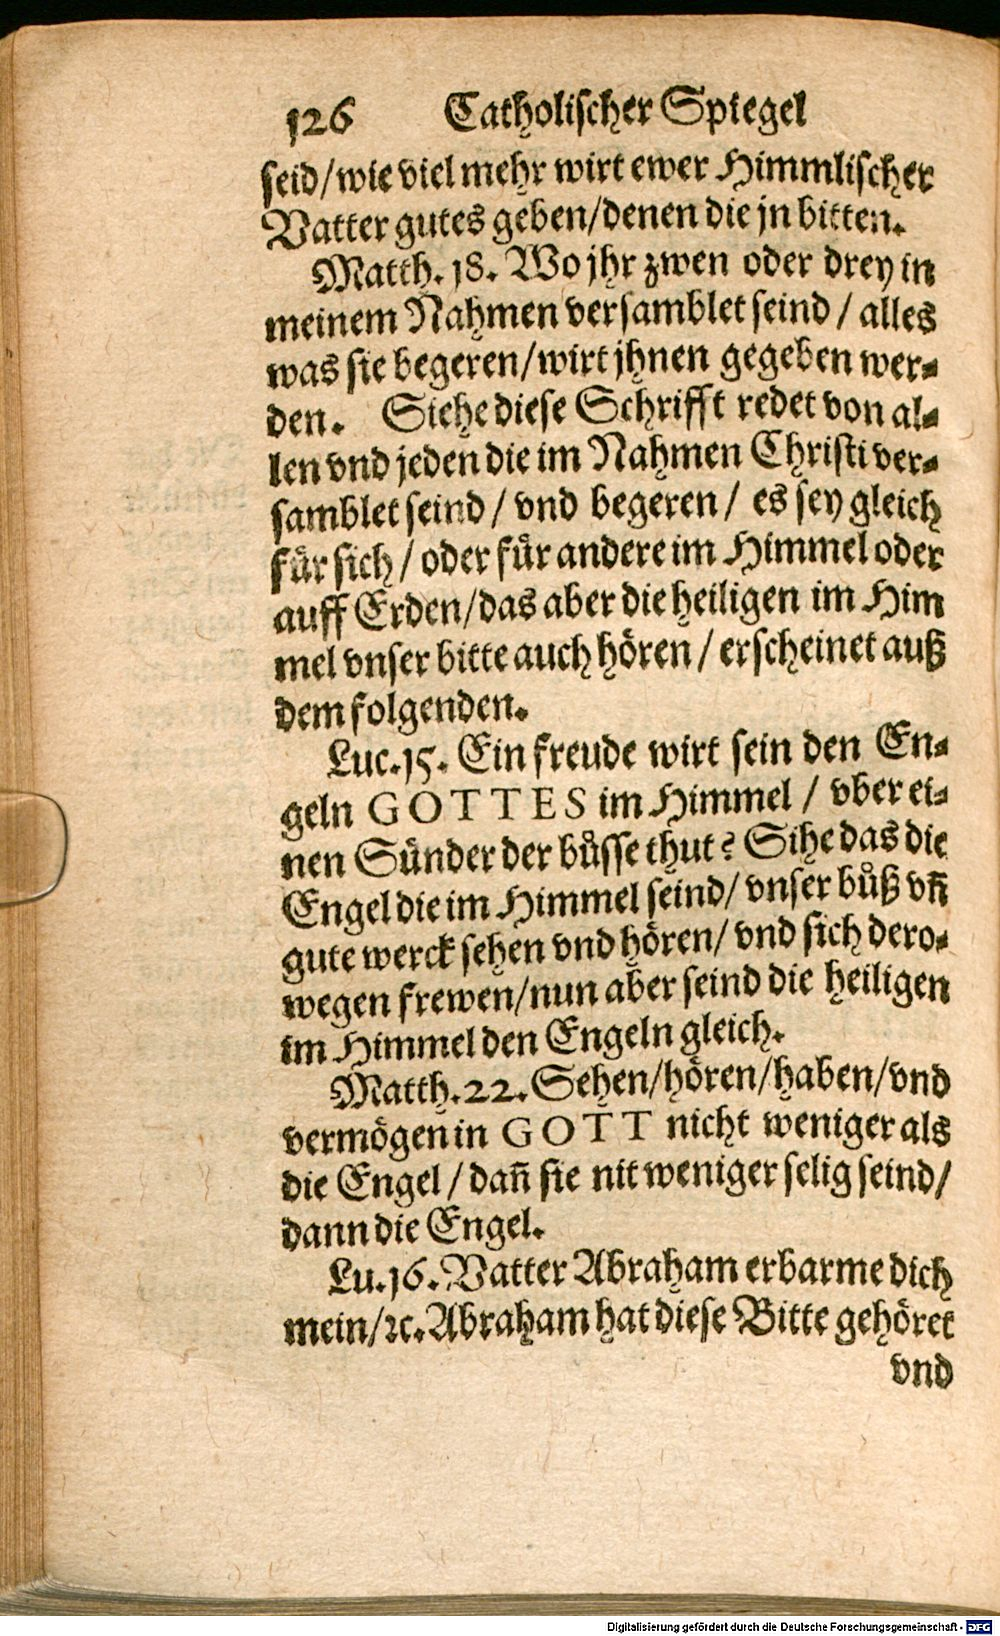 126 Catholischer Spiegel
seid/wie viel mehr wirt ewer Himmlischer
Vatter gutes geben/denen die jn bitten.
Matth. 18. Wo jhr zwen oder drey in
meinem Nahmen versamblet seind / alles
was sie begeren/wirt jhnen gegeben wer-
den. Siehe diese Schrifft redet von al-
len vnd jeden die im Nahmen Christi ver-
samblet seind / vnd begeren / es sey gleich
fůr sich / oder fůr andere im Himmel oder
auff Erden/das aber die heiligen im Him
mel vnser bitte auch hören / erscheinet auß
dem folgenden.
Luc.15. Ein freude wirt sein den En-
geln GOTTES im Himmel / vber ei-
nen Sünder der bůsse thut? Sihe das die
Engel die im Himmel seind/ vnser bůß vñ
gute werck sehen vnd hören/ vnd sich dero-
wegen frewen/nun aber seind die heiligen
im Himmel den Engeln gleich.
Matth.22. Sehen/hören/haben/vnd
vermögen in GOTT nicht weniger als
die Engel / dañ sie nit weniger selig seind/
dann die Engel.
Lu.16. Vatter Abraham erbarme dich
mein/ꝛc. Abraham hat diese Bitte gehöret
vnd
Digitalisierung gefördert durch die Deutsche Forschungsgemeinschaft - DFG